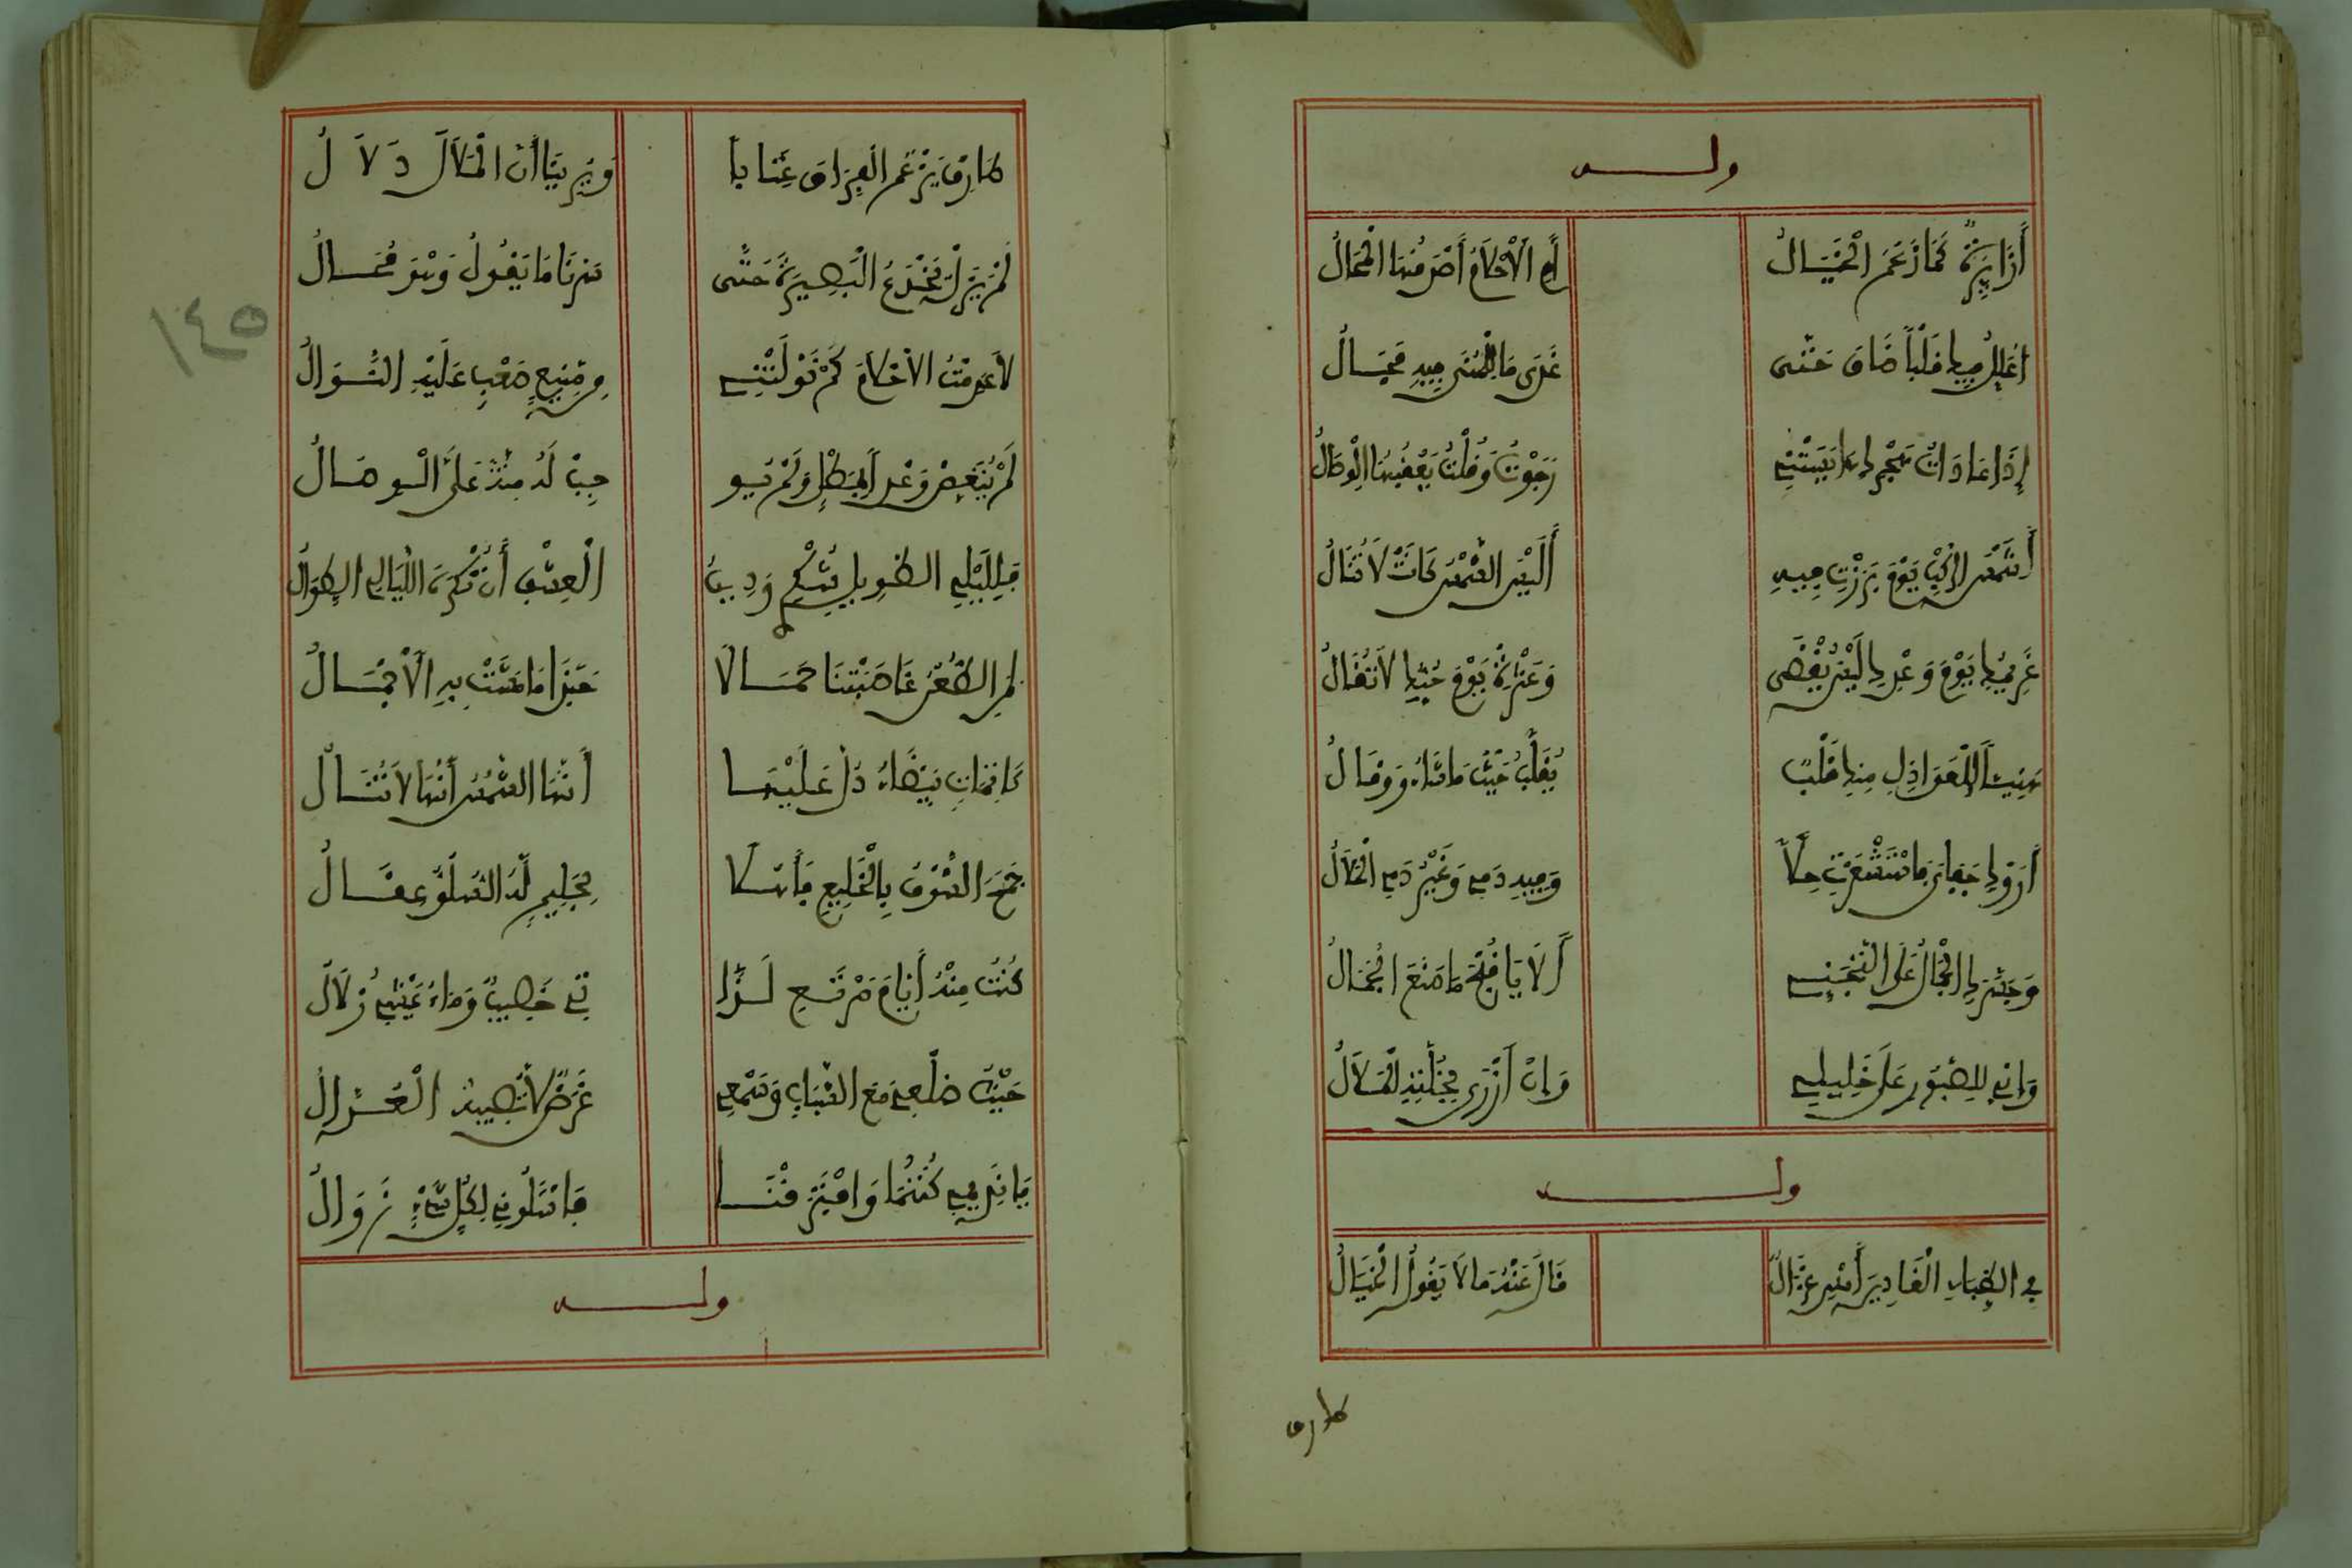 وله
أَزَائِرَةٌ كَمَا زَعَمَ الْخَيَالُ أَمِ الْأَحْلَامُ أَصْدَقُهَا الْمُحَالُ
أعلل فيك قلبًا ضاق حتى غدى ما للمنى فيه مجال
إذا عادات هجرك أيأستني رجوت وقلت يعقبها الوصال
أشمس الركب يوم برزت فيه أليس الشمس كانت لا تنال
غريمك يوم وعدك ليس يقضى وعثرة يوم حبك لا تقال
هنيئا للعواذل منك قلب يقلب حيث ما شاء وقال
أروك جفاي فاستشعرت حلا وفيه دمي وغير دمي الحلال
وجسرك الجمال على التجني ألا يا قبح ما صنع الجمال
وإني للصبور على خليلي وإن أزرى بخلته الملال
وله
في الظباء الغادين أمس غزال قال عنه ما لا يقول الخيال
طارق
طارق يزعم الفراق عتابا ويرينا أن الملال دلال
لم يزل يخدع البصيرة حتى سرنا ما يقول وهو محال
لا عدمت الأحلام كم نولتني من منيع صعب عليه النوال
لم ينغص وعدا بمطل ولم يو جب له منة علي الوصال
فلليلي الطويل شكري ودين العشق أن تكره الليالي الطوال
لمن الظعن غاصبتنا جمالا حبذا ما مشت به الأجمال
كانفات بيضاء دل عليها أنها الشمس أنها لا تنال
جمح الشوق بالخليع فأهلا بحليم له السلو عقال
كنت منه أيام مرتع لذا تي خصيب وماء عيني زلال
حيث ضلعي مع الشباب وسمعي غرض لا تصيبه العذال
يا نديمي كنتما وافترقنا فاسلواني لكل شيء زوال
وله
١٤٥